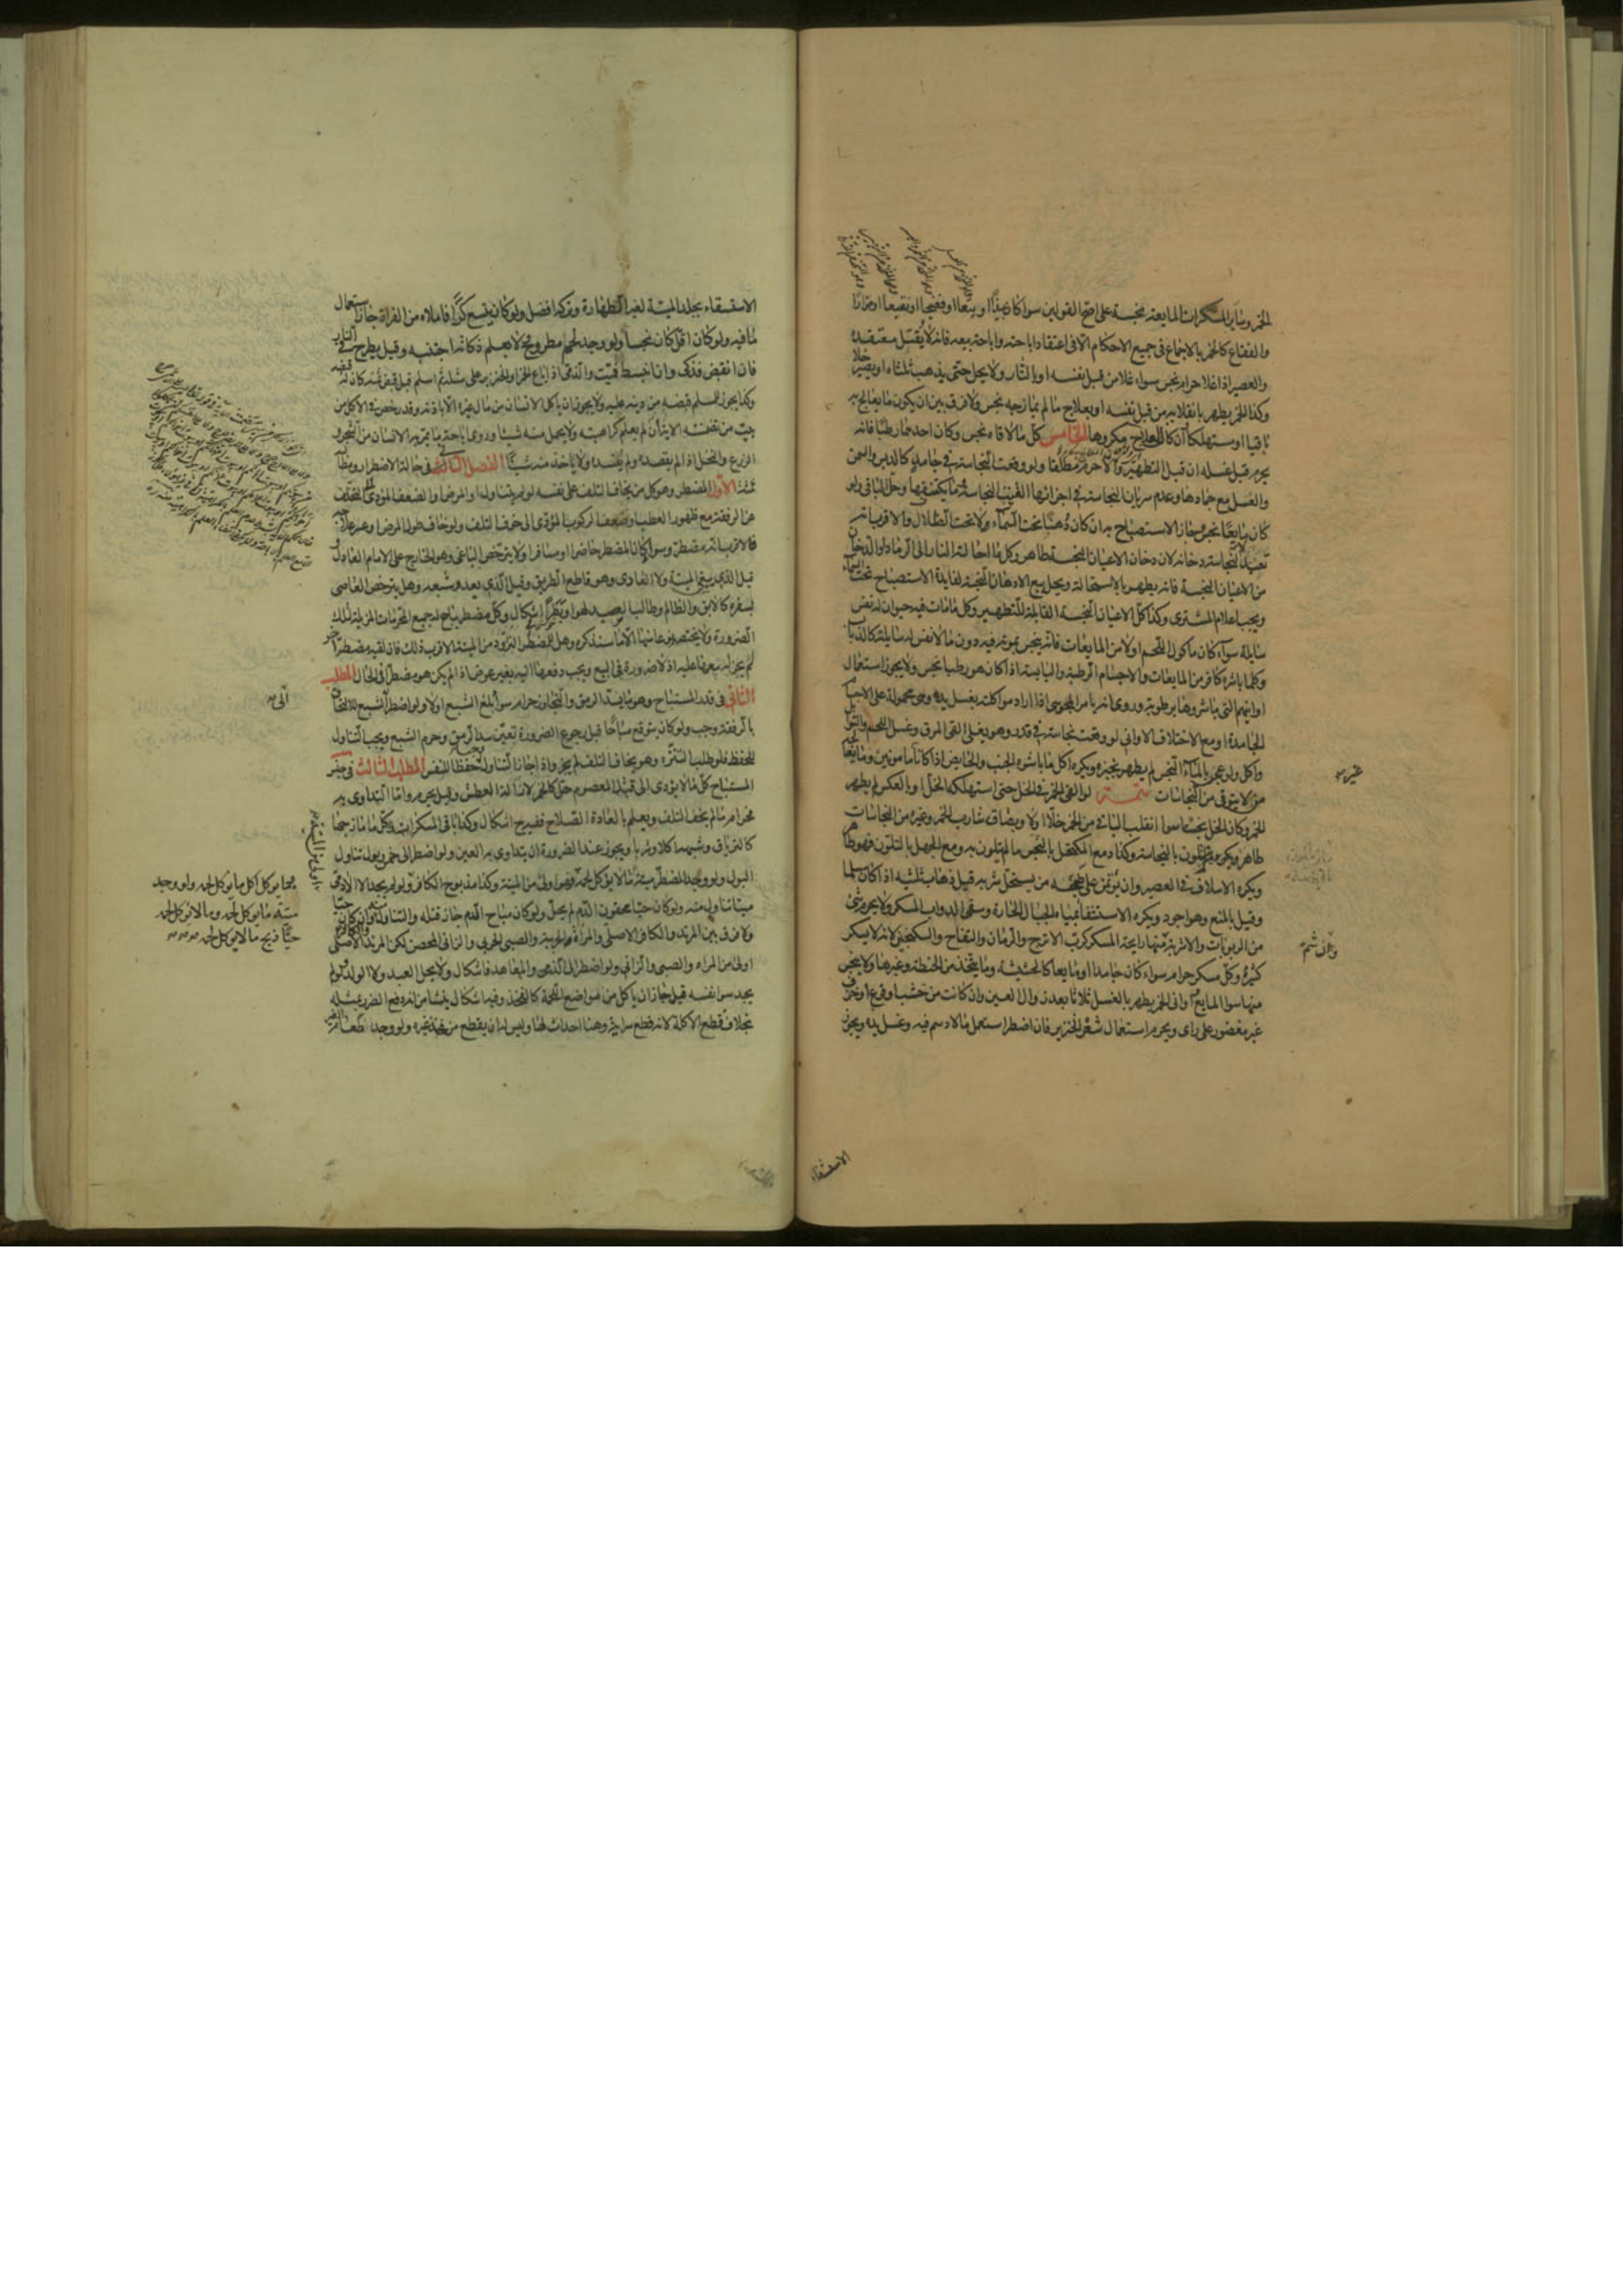 الخمر وساير المسكرات المايعة نجسة على اصح القولين سوا كان نبيذا او بتعا او فضيخا او نقيعا او مزرا
والفقاع كالخمر بالاجماع في جميع الاحكام الا في اعتقاد اباحته واباحة بيعه فانه لا يقتل معتقده
والعصير اذا غلا حرام نجس سواء غلا من قبل نفسه او بالنار ولا يحل حتى يذهب ثلثاه او يصير خلا
وكذا الخمر يطهر بانقلابه من قبل نفسه او بعلاج ما لم يمازجه نجس ولا فرق بين ان يكون ما يعالج به
باقيا او مستهلكا وان كان العلاج مكروها الخامس كل ما لاقاه نجس وكان احدهما رطبا فانه
يحرم قبل غسله ان قبل التطهير والا حرم مطلقا ولو وقعت النجاسة في جامد كالدبس والسمن
والعسل مع جمادها وعدم سريان النجاسة في اجزائها القيت النجاسة وما يكتنفها وحل الباقي ولو
كان مايعا نجس وجاز الاستصباح به ان كان دهنا تحت السماء ولا تحت الظلال والاقرب انه
تعبد لا لنجاسة دخانه لان دخان الاعيان النجسة طاهر وكل ما احالته النار الى الرماد او الدخان
من الاعيان النجسة فانه يطهر بالاستحالة ويحل بيع الادهان النجسة لفايدة الاستصباح تحت السماء
ويجب اعلام المشتري وكذا كل الاعيان النجسة القابلة للتطهير وكل ما مات فيه حيوان له نفس
سايلة سواء كان ماكول اللحم او لا من المايعات فانه ينجس بموته فيه دون ما لا نفس له سايلة كالذباب
وكلما باشره كافر من المايعات والاجسام الرطبة واليابسة اذا كان هو رطبا نجس ولا يجوز استعمال
اوانيهم التي باشروها برطوبة وروي انه يامر المجوسي اذا اراد مواكلته بغسل يده وهي محمولة على الاجسام
الجامدة او مع الاختلاف الاواني لو وقعت نجاسة في قدر وهو يغلي القي المرق وغسل اللحم والتوابل
واكل ولو عجن بالماء النجس لم يطهر بخبزه ويكره اكل ما باشره الجنب والحايض اذا كانا غير مامونين وما يعالجه
من لا يتوقى من النجاسات تتمة لو القي الخمر في الخل حتى استهلكه الخل او بالعكس لم يطهر
الخمر وكان الخل نجسا سوا انقلب الباقي من الخمر خلا او لا وبصاق شارب الخمر وغيره من النجاسات
طاهر ما لم يتلون بالنجاسة وكذا دمع المكتحل بالنجس ما لم يتلون به ومع الجهل بالتلون فهو طاهر
ويكره الاسلاف في العصير وان يؤتمن على طبخه من يستحل شربه قبل ذهاب ثلثيه اذا كان مسلما
وقيل بالمنع وهو اجود ويكره الاستشفاء بمياه الجبال الحارة وسقي الدواب المسكر ولا يحرم شئ
من الربوبات والاشربة وان شم منها رايحة المسكر كرب الاترج والرمان والتفاح والسكنجبين لانه لا يسكر
كثيره وكل مسكر حرام سواء كان جامدا او مايعا كالحشيشة وما يتخذ من الحنطة وغيرها ولا ينجس
منها سوا المايع واواني الخمر يطهر بالغسل ثلاثا بعد زوال العين وان كانت من خشب او قرع او خزف
غير مغضور على راى ويحرم استعمال شعر الخنزير فان اضطر استعمل ما لا دسم فيه وغسل يده ويجوز
غير صه
وان شم
الاستسقاء
الاستسقاء بجلد الميتة لغير الطهارة وتركه افضل ولو كان يتسع كرا فاملاه من الفراة جاز استعمال
ما فيه ولو كان اقل كان نجسا ولو وجد لحم مطروح لا يعلم ذكاته اجتنبه وقيل يطرح في النار
فان انقبض فذكي وان انبسط فميت والذمي اذا باع الخمر او الخنزير على مثله ثم اسلم قبل قبض ثمنه كان له قبضه
وكذا يجوز للمسلم قبضه من دينه عليه ولا يجوز ان ياكل الانسان من مال غيره الا باذنه وقد رخص في الاكل من
بيت من تضمنته الاية ان لم يعلم كراهيته ولا يحمل منه شيئا وروي اباحة ما يمر به الانسان من الشجر و
الزرع والنخل اذا لم يقصده ولم يفسده ولا ياخذ منه شيئا الفصل الثالث في حالة الاضطرار ومطالبه
ثلثة الاول المضطر وهو كل من يخاف التلف على نفسه لو لم يتناول او المرض او الضعف المؤدي الى التخلف
عن الرفقة مع ظهور العطب او ضعف الركوب المؤدي الى خوف التلف ولو خاف طول المرض او عسر علاجه
فالاقرب انه مضطر وسوا كان المضطر حاضرا او مسافرا ولا يترخص الباغي وهو الخارج على الامام العادل و
قيل الذي يبغي الميتة ولا العادي وهو قاطع الطريق وقيل الذي يعدو شبعه وهل يترخص العاصي
بسفره كالابق والظالم وطالب الصيد لهوا وبطرا اشكال وكل مضطر يباح له جميع المحرمات المزيلة لتلك
الضرورة ولا يختص نوعا منها الا ما سنذكره وهل للمضطر التزود من الميتة الاقرب ذلك فان لقيه مضطر اخر
لم يجز له بيعها عليه اذ لا ضرورة في البيع ويجب دفعها اليه بغير عوض اذا لم يكن هو مضطرا في الحال المطلب
الثاني في قدر المستباح وهو ما يسد الرمق والتجاوز حرام سوا بلغ الشبع او لا ولو اضطر الى الشبع للالتحاق
بالرفقة وجب ولو كان يتوقع مباحا قبل رجوع الضرورة تعين سد الرمق وحرم الشبع ويجب التناول
للحفظ فلو طلب التنزه وهو يخاف التلف لم يجز واذا جاز التناول وجب حفظا للنفس المطلب الثالث في جنس
المستباح كل ما لا يؤدي الى قتل المعصوم حل كالخمر لازالة العطش وقيل يحرم واما التداوي به
فحرام ما لم يخف التلف ويعلم بالعادة الصلاح ففيه ح اشكال وكذا باقي المسكرات وكل ما مازجها
كالترياق وشبهه اكلا وشربا ويجوز عند الضرورة ان يتداوى به العين ولو اضطر الى خمر وبول تناول
البول ولو وجد المضطر ميتة ما لا يؤكل لحمه فهو اولى من الميتة وكذا مذبوح الكافر ولو لم يجد الا الادمي
ميتا تناول منه ولو كان حيا محقون الدم لم يحل ولو كان مباح الدم جاز قتله والتناول منه وان كان حيا
ولا فرق بين المرتد والكافر الاصلي والمراة الحربية والصبي الحربي والزاني المحصن لكن المرتد والكافر الاصلي
اولى من المراه والصبي والزاني ولو اضطر الى الذمي والمعاهد فاشكال ولا يحل العبد ولا الولد ولو لم
يجد سوا نفسه قيل جاز ان ياكل من مواضع اللحمة كالفخذ وفيه اشكال ينشأ من انه دفع الضرر بمثله
بخلاف قطع الاكلة لانه قطع سراية وهنا احداث لها وليس له ان يقطع من فخذ غيره ولو وجد طعام الغير
الى صه
مما يوكل اكل ما يوكل لحمه ولو وجد
ميتة ما يوكل لحمه وما لا يؤكل لحمه
حيا ذبح ما لا يوكل لحمه صه صه